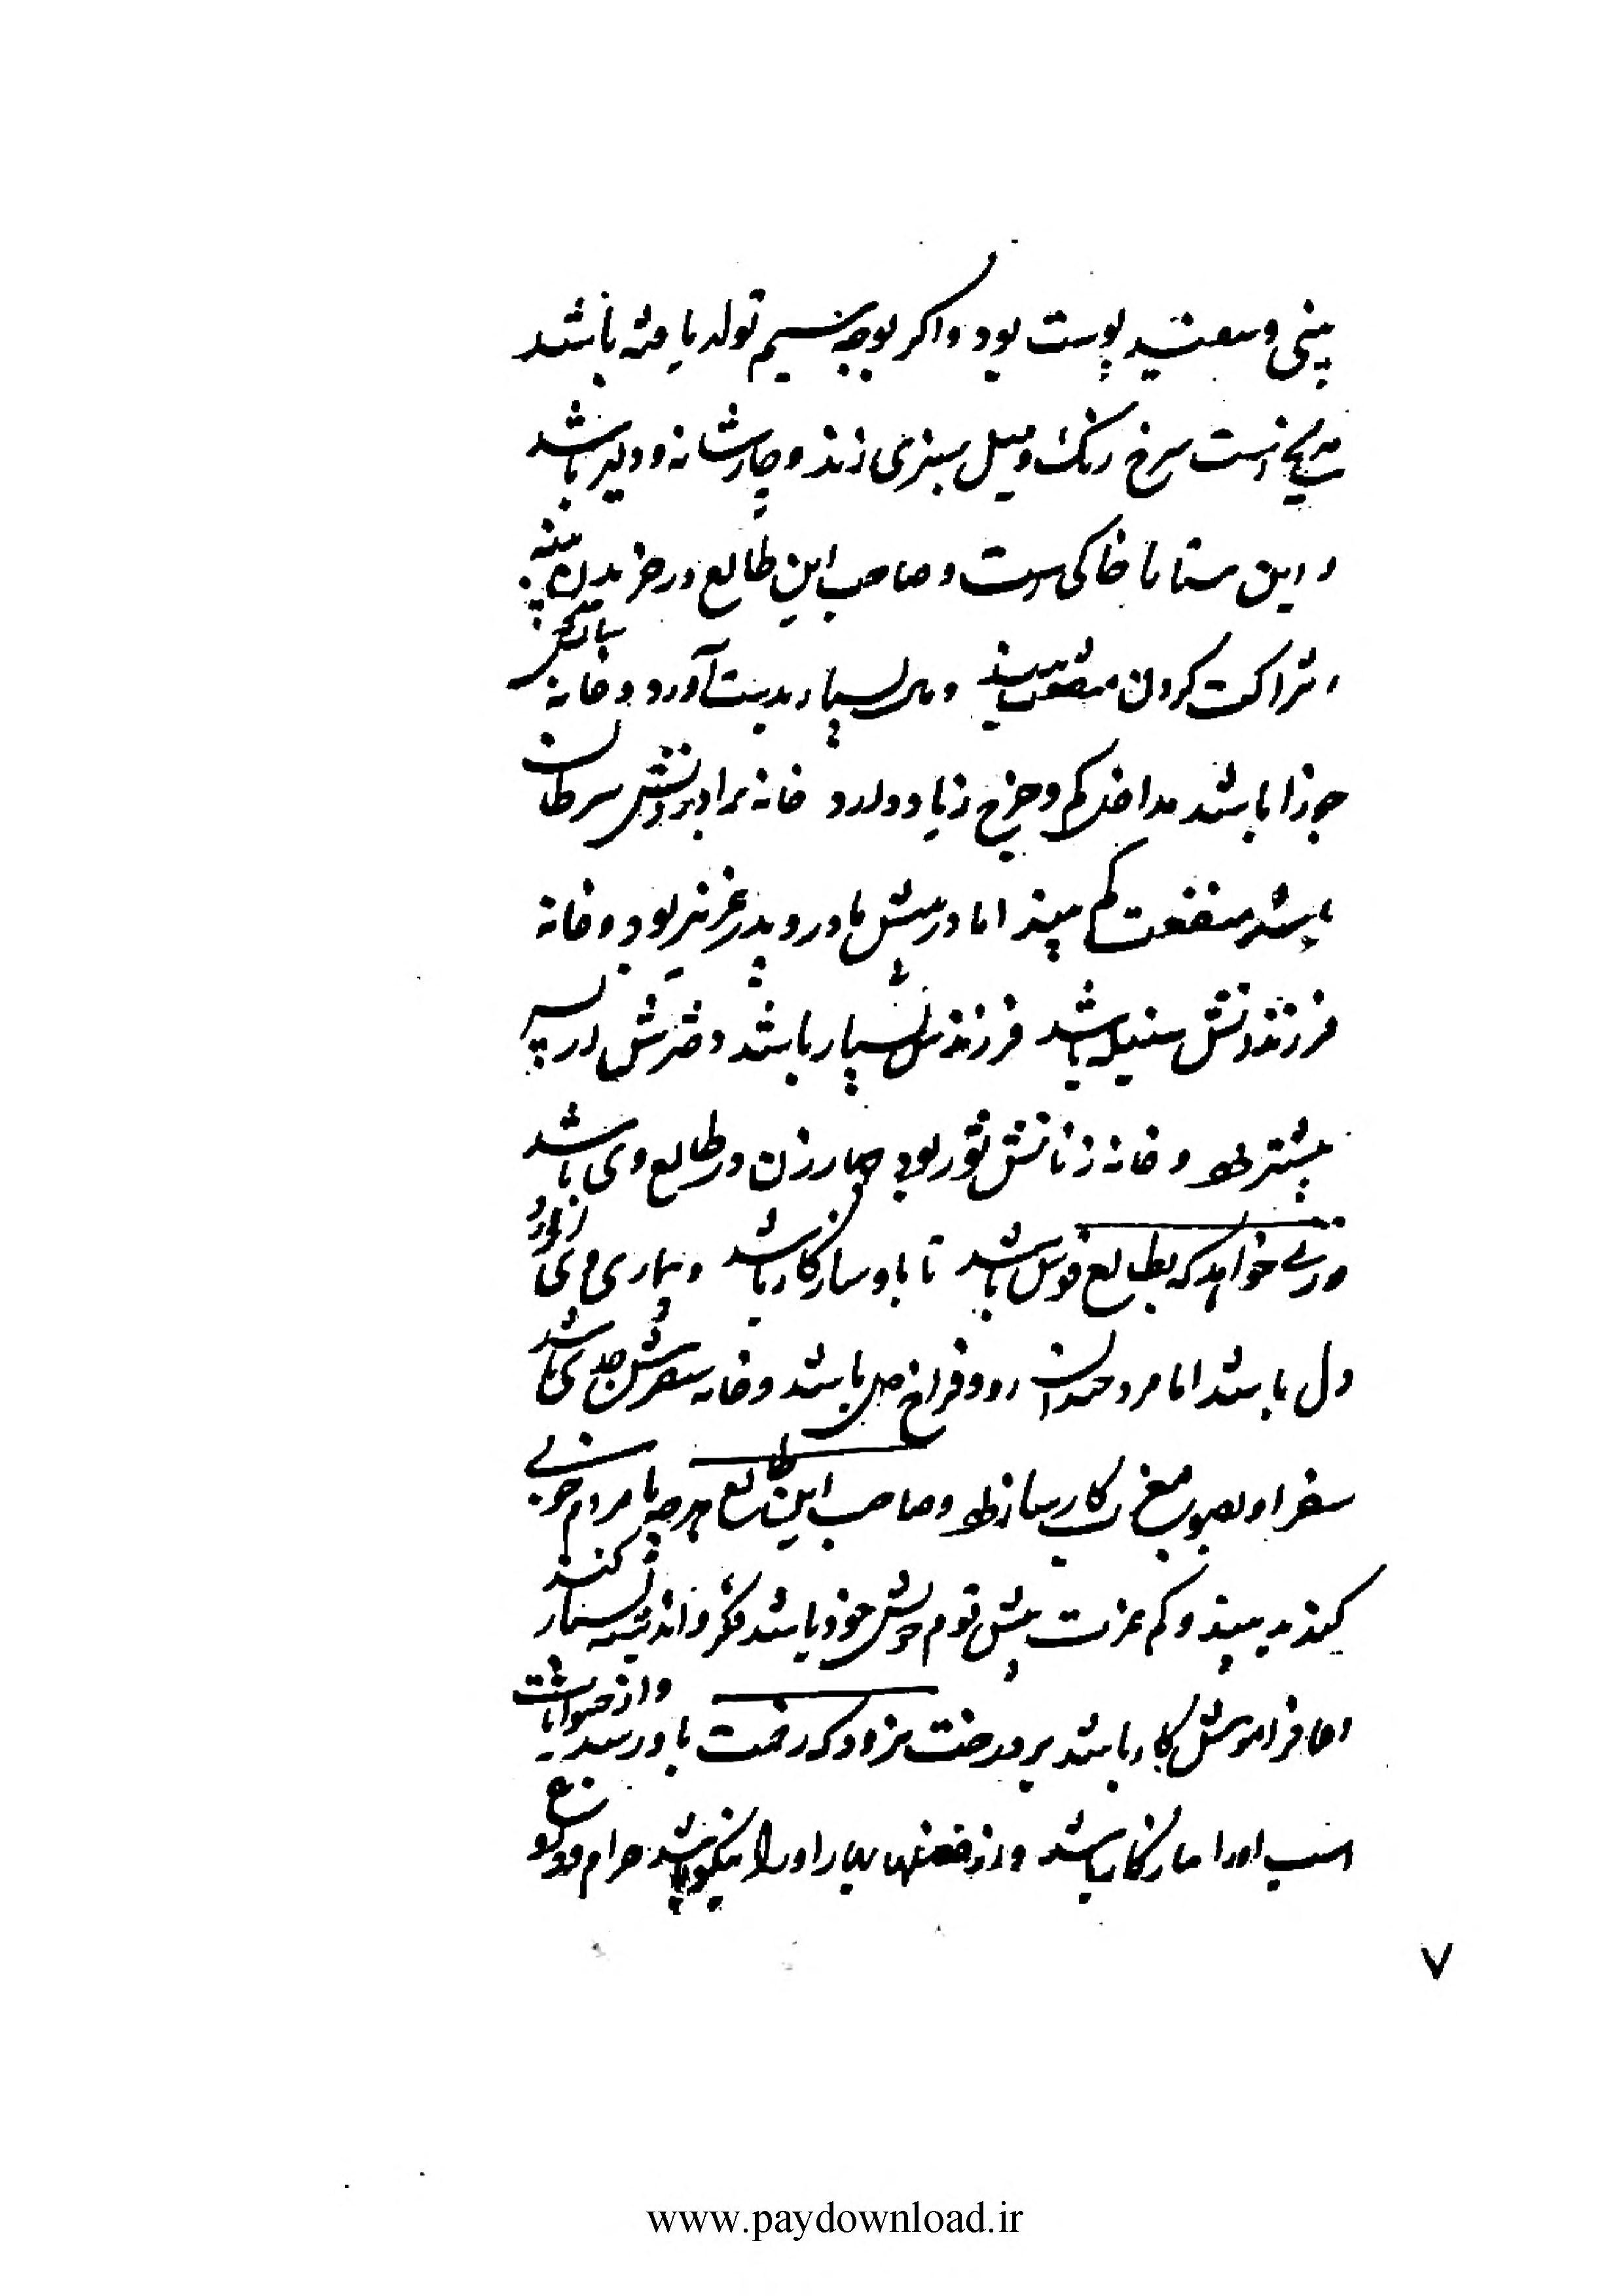 بینی و سفید پوست بود و اگر بوجه سیم تولد یافته باشد
مریخ است سرخ رنگ و میل بسبزی زند و چارشانه و دلیر باشد
و این ستاره خاکی است و صاحب این طالع در خریدن
شراکت کردن منفعت بیند و مال بسیار بدست آورد و خانه مالش
جوزا باشد مداخل کم و خرج زیاد دارد خانه برادرانش سرطان
باشد منفعت کم بیند اما در پیش مادر و پدر عزیز بود و خانه
فرزندانش سنبله باشد فرزندش بسیار باشد دخترش از پسر
بیشتر بود و خانه زنانش ثور بود چهار زن در طالع وی باشد
زنی خواهد که بطالع قوس باشد تا با او سازگار باشد و بیماری وی از درد
دل باشد اما مرد خندان رو و فراخ دل باشد و خانه سفرش جدی باشد
سفر او بصوب مغرب کار ساز بود و صاحب این طالع هرچه با مردم خوبی
کند بد بیند و کم عزت پیش قوم خویش خود باشد فکر و اندیشه بسیار کند
اما فراموش کار باشد بر درخت نرود که زحمت باو رسد و از حیوانات
اسب او را سازگار باشد و از فصلها بهار او را نیکو باشد
۷
www.paydownload.ir